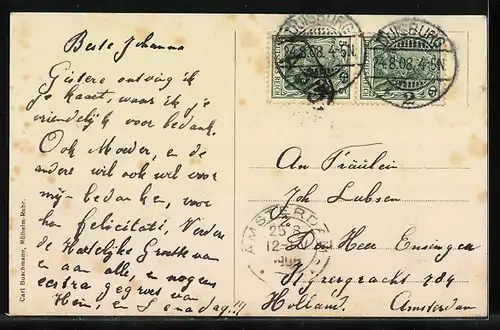 Beste Johanna
Gistere ontving ik
je kaart, waar ik je
vriendelijk voor bedank.
Ook Moeder, en de
andere wil ook wel voor
mij bedanke, voor
han felicitati, Verder
de Hartelijke Groete van
en aan alle, en nog eens
extra gegroet van
Hein, en Lena dag!!!
Carl Buschmann, Mülheim-Ruhr.
DUISBURG
24.8.08.4-5N.
DUISBURG
24.8.08.4-5N.
2
An Fräulein
Joh Lubsen
AMSTERDAM
25 8
12-
Den Heer Ensinger
Keizersgracht 784
Holland. Amsterdam